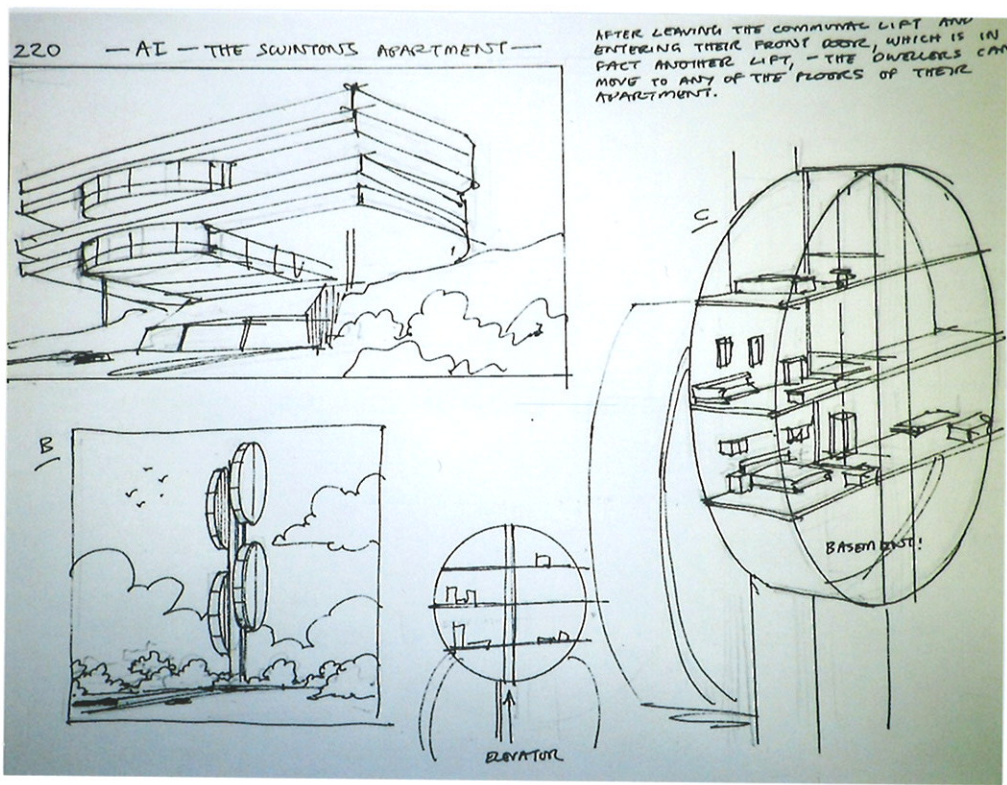 220 — AI — THE SWINTONS APARTMENT —
AFTER LEAVING THE COMMUNAL LIFT AND
ENTERING THEIR FRONT DOOR, WHICH IS IN
FACT ANOTHER LIFT, — THE DWELLERS CAN
MOVE TO ANY OF THE FLOORS OF THEIR
APARTMENT.
C
B
BASEMENT!
ELEVATOR